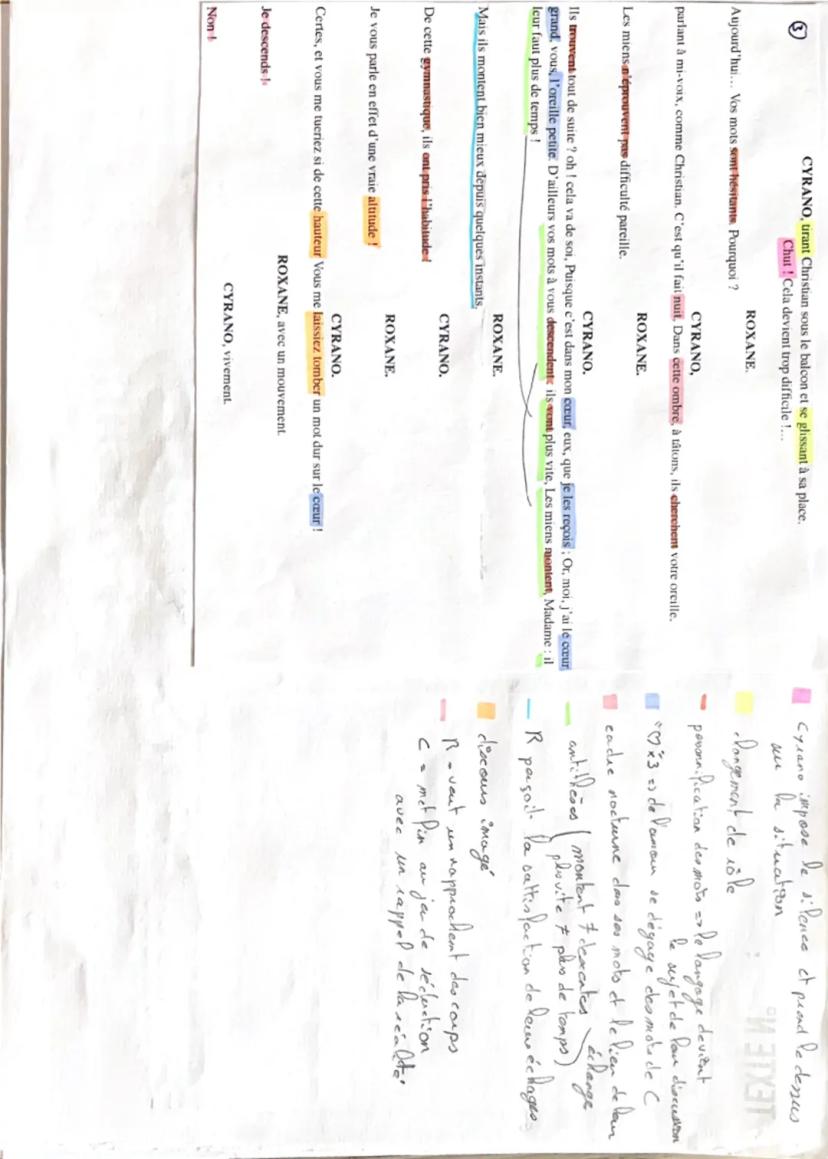 ③
CYRANO, tirant Christian sous le balcon et se glissant à sa place.
Chut ! Cela devient trop difficile !…
ROXANE.
Aujourd’hui… Vos mots sont hésitants. Pourquoi ?
CYRANO,
parlant à mi-voix, comme Christian. C’est qu’il fait nuit, Dans cette ombre, à tâtons, ils cherchent votre oreille.
ROXANE.
Les miens n’éprouvent pas difficulté pareille.
CYRANO.
Ils trouvent tout de suite ? oh ! cela va de soi, Puisque c’est dans mon cœur, eux, que je les reçois ; Or, moi, j’ai le cœur
grand, vous, l’oreille petite. D’ailleurs vos mots à vous descendent : ils vont plus vite, Les miens montent, Madame : il
leur faut plus de temps !
ROXANE.
Mais ils montent bien mieux depuis quelques instants.
CYRANO.
De cette gymnastique, ils ont pris l’habitude !
ROXANE.
Je vous parle en effet d’une vraie altitude !
CYRANO.
Certes, et vous me tueriez si de cette hauteur Vous me laissiez tomber un mot dur sur le cœur !
ROXANE, avec un mouvement.
Je descends !
CYRANO, vivement.
Non !
Cyrano impose le silence et prend le dessus
sur la situation
changement de rôle
personnification des mots => le langage devient
le sujet de leur discussion
"♡" x3 => de l'amour se dégage des mots de C
cadre nocturne dans ses mots et le lieu de leur
échange
antithèses ( montent ≠ descentes
plus vite ≠ plus de temps )
R perçoit la satisfaction de leurs échanges
discours imagé
R = veut un rapprochement des corps
C = met fin au jeu de séduction
avec un rappel de la réalité
TEXTE N°